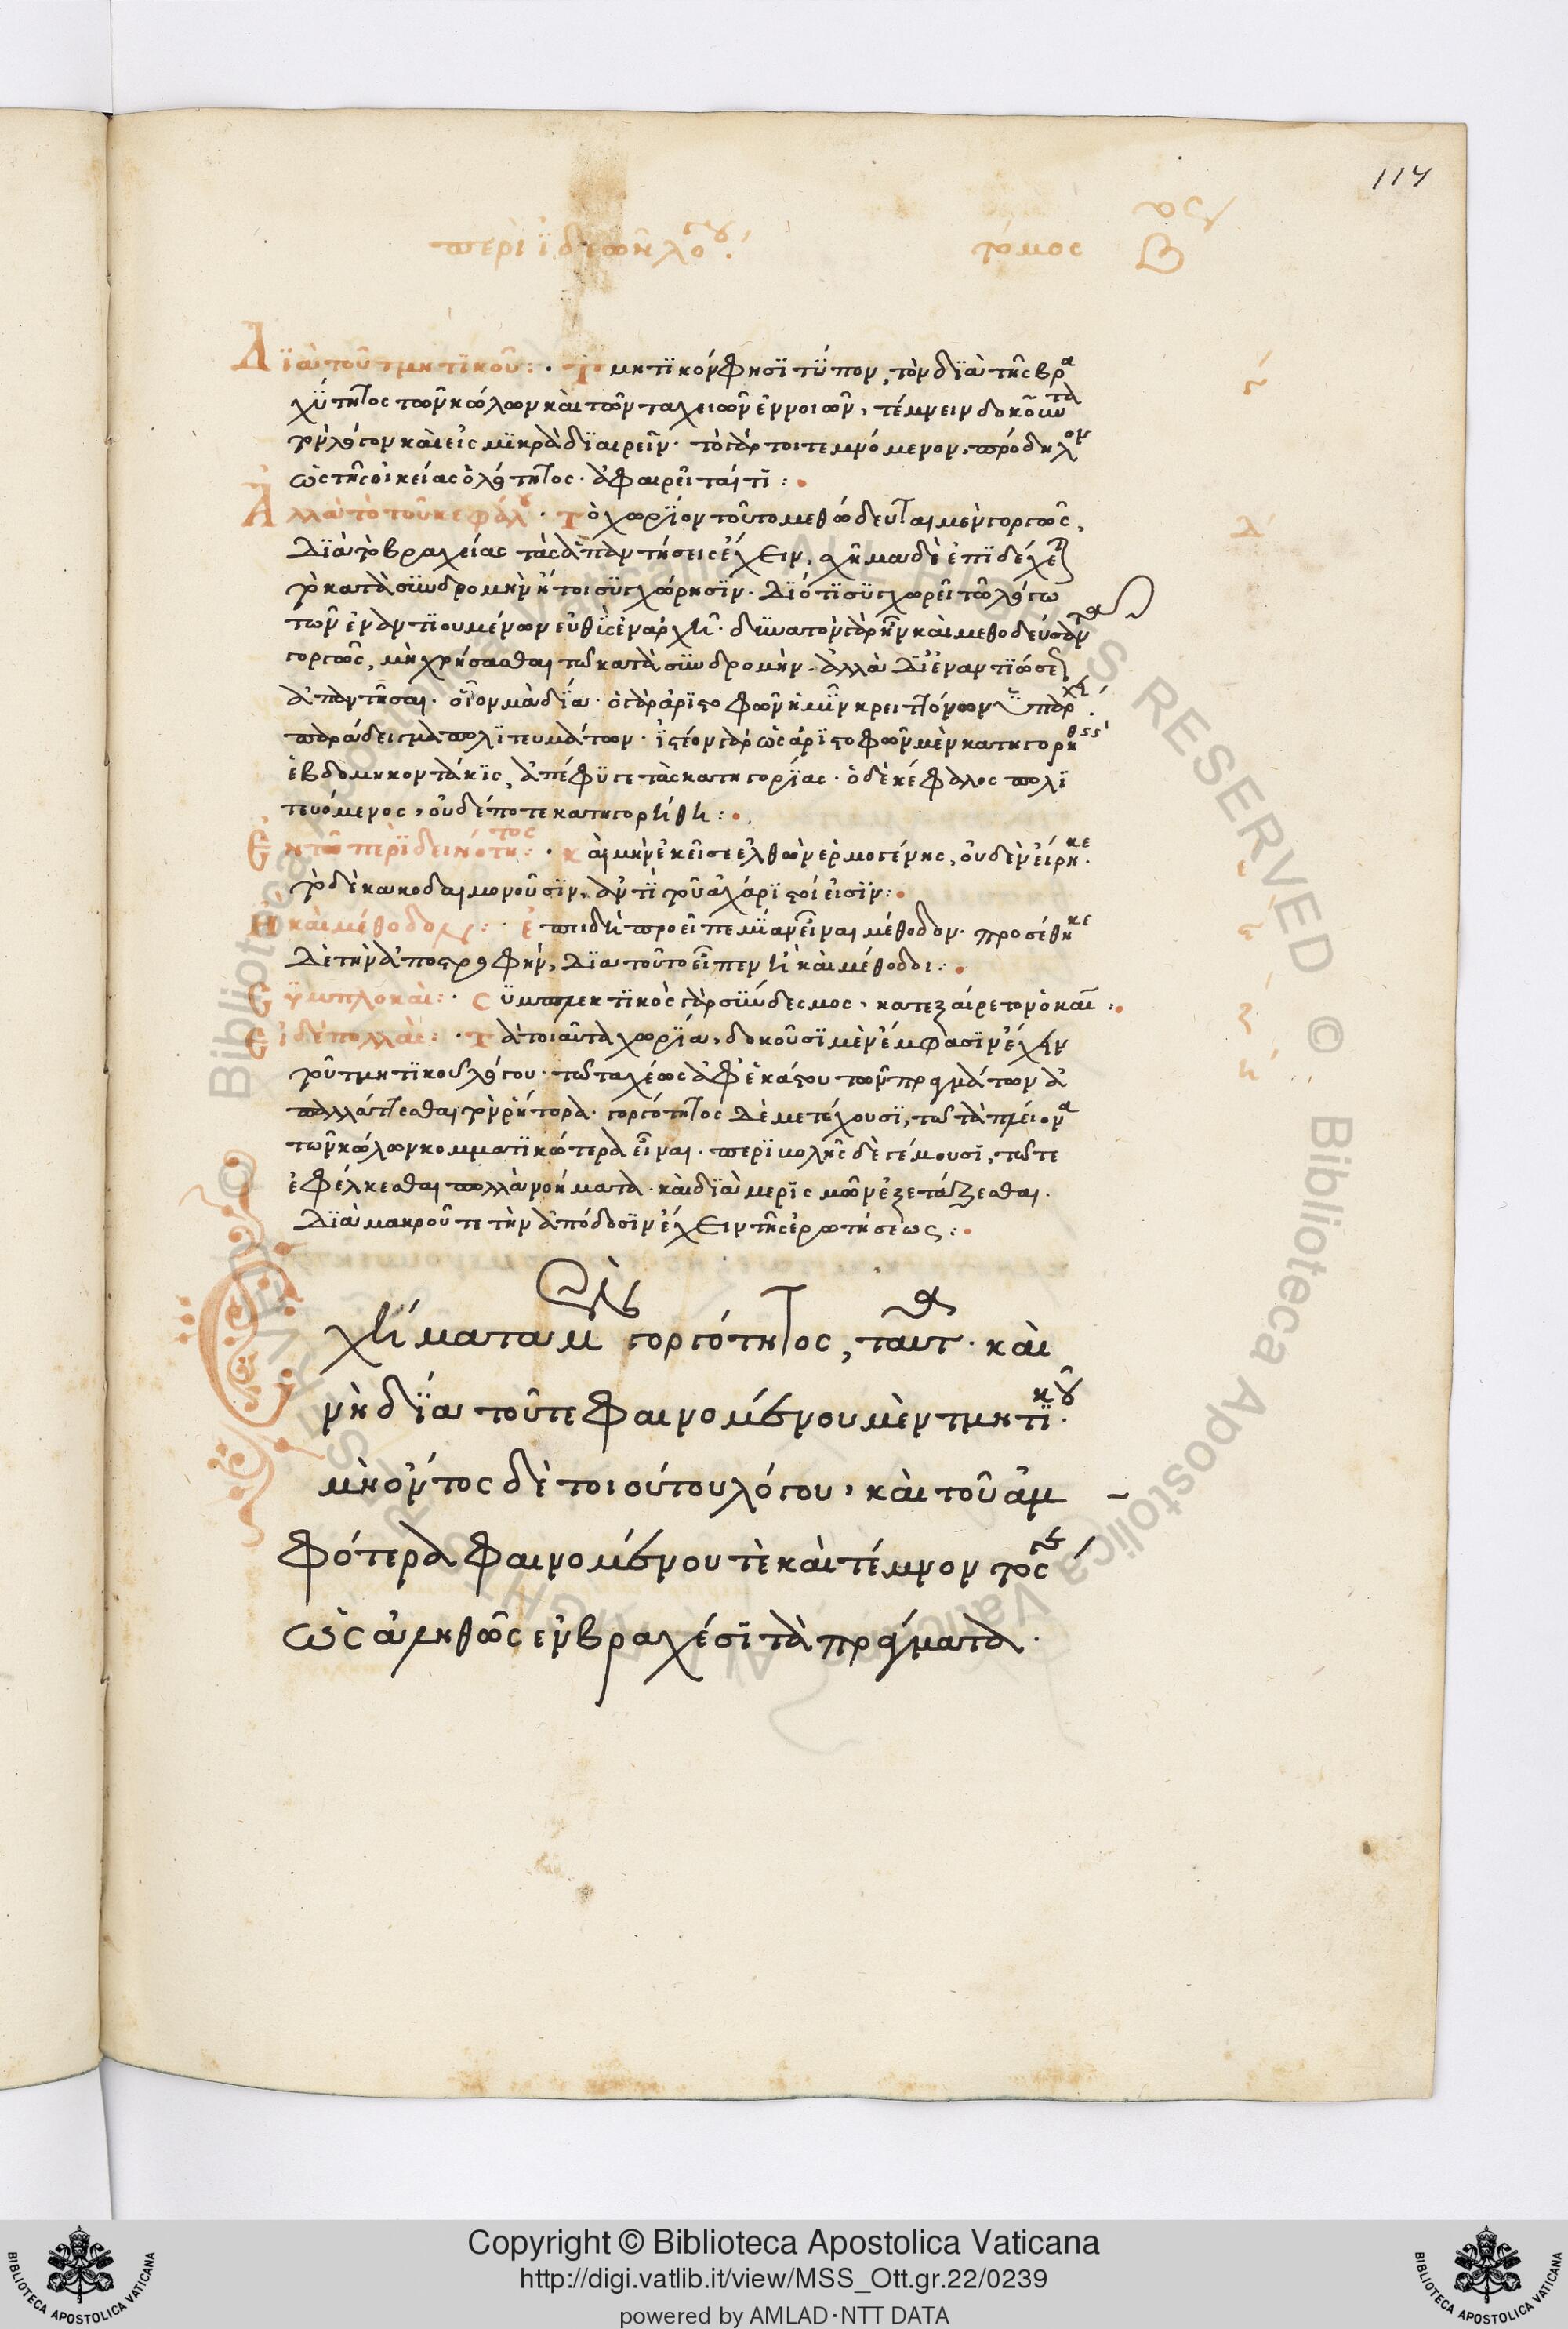 114
περὶ ἰδεῶν λόγου τόμος Β
Διὰ τοῦ τμητικοῦ: · Τμητικόν φησι τύπον, τὸν διὰ τῆς βρα
χύτητος τῶν κώλων καὶ τῶν ταχειῶν ἐννοιῶν, τέμνειν δοκοῦντα
τὸν λόγον καὶ εἰς μικρὰ διαιρεῖν· τὸ γάρ τοι τεμνόμενον, πρόδηλον
ὡς τῆς οἰκείας ὁλότητος· ἀφαιρεῖταί τι:
Ἀλλὰ τὸ τοῦ κεφάλου · Τὸ χωρίον τοῦτο μεθώδευται μὲν γοργῶς,
διὰ τὸ βραχείας τὰς ἀπαντήσεις ἔχειν, σχῆμα δὲ ἐπιδέχεται
τὸ κατὰ συνδρομὴν ἤτοι συγχώρησιν· διότι συγχωρεῖ τῶ λόγω
τῶν ἐναντιουμένων εὐθὺς ἐν ἀρχῆ· δυνατὸν γὰρ ἦν καὶ μεθοδεύσαντα
γοργῶς, μὴ χρήσασθαι τῶ κατὰ συνδρομὴν· ἀλλὰ δι' ἐναντιώσεως
ἀπαντῆσαι· οἷον μὰ δία· ὁ γὰρ ἀριστοφῶν ἡμῖν κρειττόνων ὑπάρχει
παράδειγμα πολιτευμάτων· ἰστέον γὰρ ὡς ἀριστοφῶν μὲν κατηγορηθεὶς
ἑβδομηκοντάκις, ἀπέφυγε τὰς κατηγορίας· ὁ δὲ κέφαλος πολι
τευόμενος, οὐδέποτε κατηγορήθη:
Ἐν τῶ περὶ δεινότητος: · καὶ μὴν ἐκεῖσε ἐλθὼν ἑρμογένης, οὐδὲν εἴρηκε·
τὸ δὲ κακοδαιμονοῦσιν, ἀντὶ τοῦ ἀχάριστοί εἰσιν:
Ἢ καὶ μέθοδοι: · ἐπειδὴ προεῖπε μίαν εἶναι μέθοδον· προσέθηκε
δὲ τὴν ἀποστροφὴν, διὰ τοῦτο εἶπεν ἢ καὶ μέθοδοι:
Συμπλοκαὶ: · Συμπλεκτικὸς γὰρ σύνδεσμος, κατεξαίρετον ὁ καὶ:
Εἰ δὲ πολλὰς: · Τὰ τοιαῦτα χωρία, δοκοῦσι μὲν ἔμφασιν ἔχειν
τοῦ τμητικοῦ λόγου· τῶ ταχέως ἀφ' ἑκάστου τῶν πραγμάτων ἀ
παλλάττεσθαι τὸν ῥήτορα· γοργότητος δὲ μετέχουσι, τῶ τὰ πλείονα
τῶν κώλων κομματικώτερα εἶναι· περιβολῆς δὲ γέμουσι, τῶ τε
ἐφέλκεσθαι πολλὰ νοήματα· καὶ διὰ μερισμῶν ἐξετάζεσθαι·
διὰ μακροῦ τε τὴν ἀπόδοσιν ἔχειν τῆς ἐρωτήσεως:
Σχήματα μὲν γοργότητος, ταῦτα· καὶ
νὴ δία τοῦτε φαινομένου μὲν τμητικοῦ·
μὴ ὄντος δὲ τοιούτου λόγου, καὶ τοῦ ἀμ
φότερα φαινομένου τὲ καὶ τέμνοντος
ὡς ἀληθῶς ἐν βραχέσι τὰ πράγματα·
γ
δ
ε
ς
ζ
η
© Biblioteca Apostolica Vaticana ALL RIGHTS RESERVED © Biblioteca Apostolica Vaticana ALL RIGHTS RESERVED
Copyright © Biblioteca Apostolica Vaticana
http://digi.vatlib.it/view/MSS_Ott.gr.22/0239
powered by AMLAD·NTT DATA
BIBLIOTECA APOSTOLICA VATICANA
BIBLIOTECA APOSTOLICA VATICANA